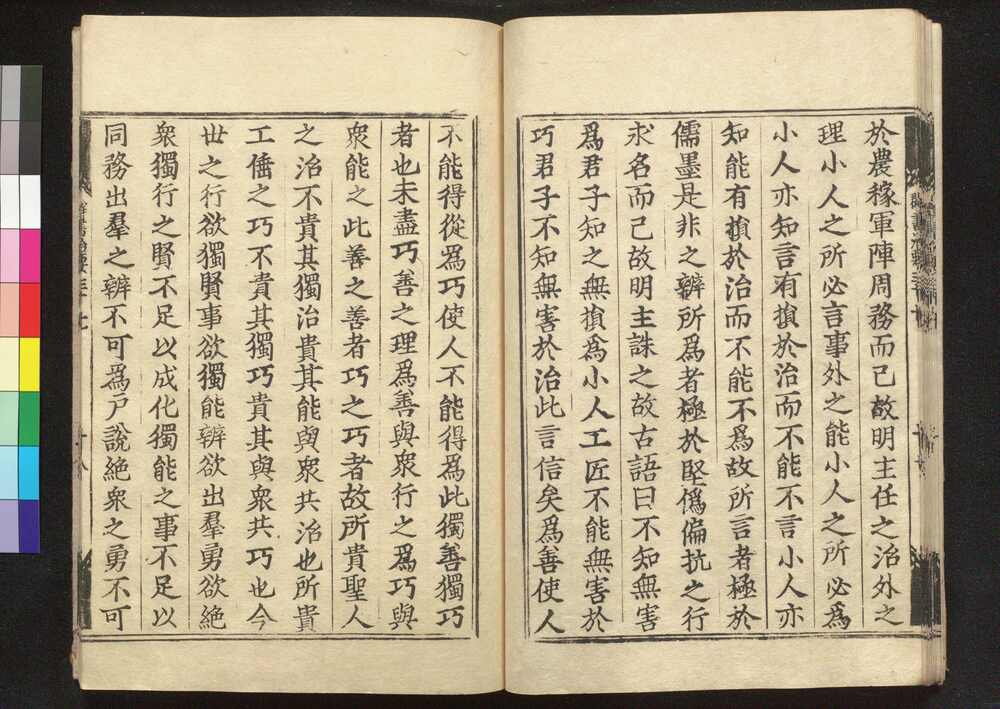 於農稼軍陣周務而已故明主任之治外之
理小人之所必言事外之能小人之所必爲
小人亦知言有損於治而不能不言小人亦
知能有損於治而不能不爲故所言者極於
儒墨是非之辨所爲者極於堅僞偏抗之行
求名而已故明主誅之故古語曰不知無害
爲君子知之無損爲小人工匠不能無害於
巧君子不知無害於治此言信矣爲善使人
不能得從爲巧使人不能得爲此獨善獨巧
者也未盡巧善之理爲善與衆行之爲巧與
衆能之此善之善者巧之巧者故所貴聖人
之治不貴其獨治貴其能與衆共治也所貴
工倕之巧不貴其獨巧貴其與衆共巧也今
世之行欲獨賢事欲獨能辨欲出羣勇欲絶
衆獨行之賢不足以成化獨能之事不足以
同務出羣之辨不可爲戸說絶衆之勇不可